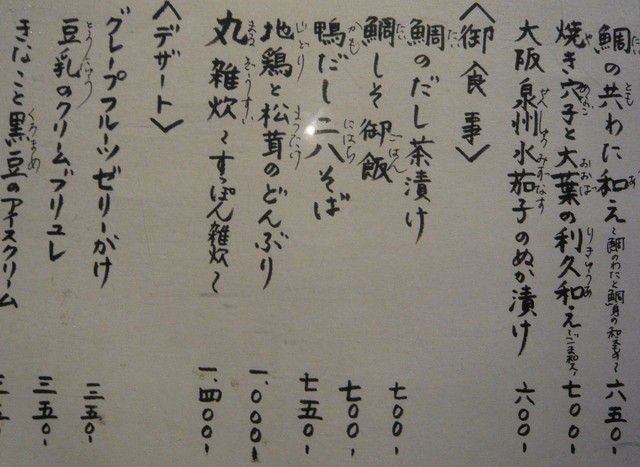 鯛の共わた和え~鯛のわたと鯛身の和えもの~ 六五〇-
焼き穴子と大葉の利久和え~ごま和え~ 七〇〇-
大阪泉州水茄子のぬか漬け 六〇〇-
〈御食事〉
鯛のだし茶漬け 七〇〇-
鯛しそ御飯 七〇〇-
鴨だし二八そば 七五〇-
地鶏と松茸のどんぶり 一、〇〇〇-
丸雑炊~すっぽん雑炊~ 一、四〇〇-
〈デザート〉
グレープフルーツゼリーがけ 三五〇-
豆乳のクリームブリュレ 三五〇-
きなこと黒豆のアイスクリーム